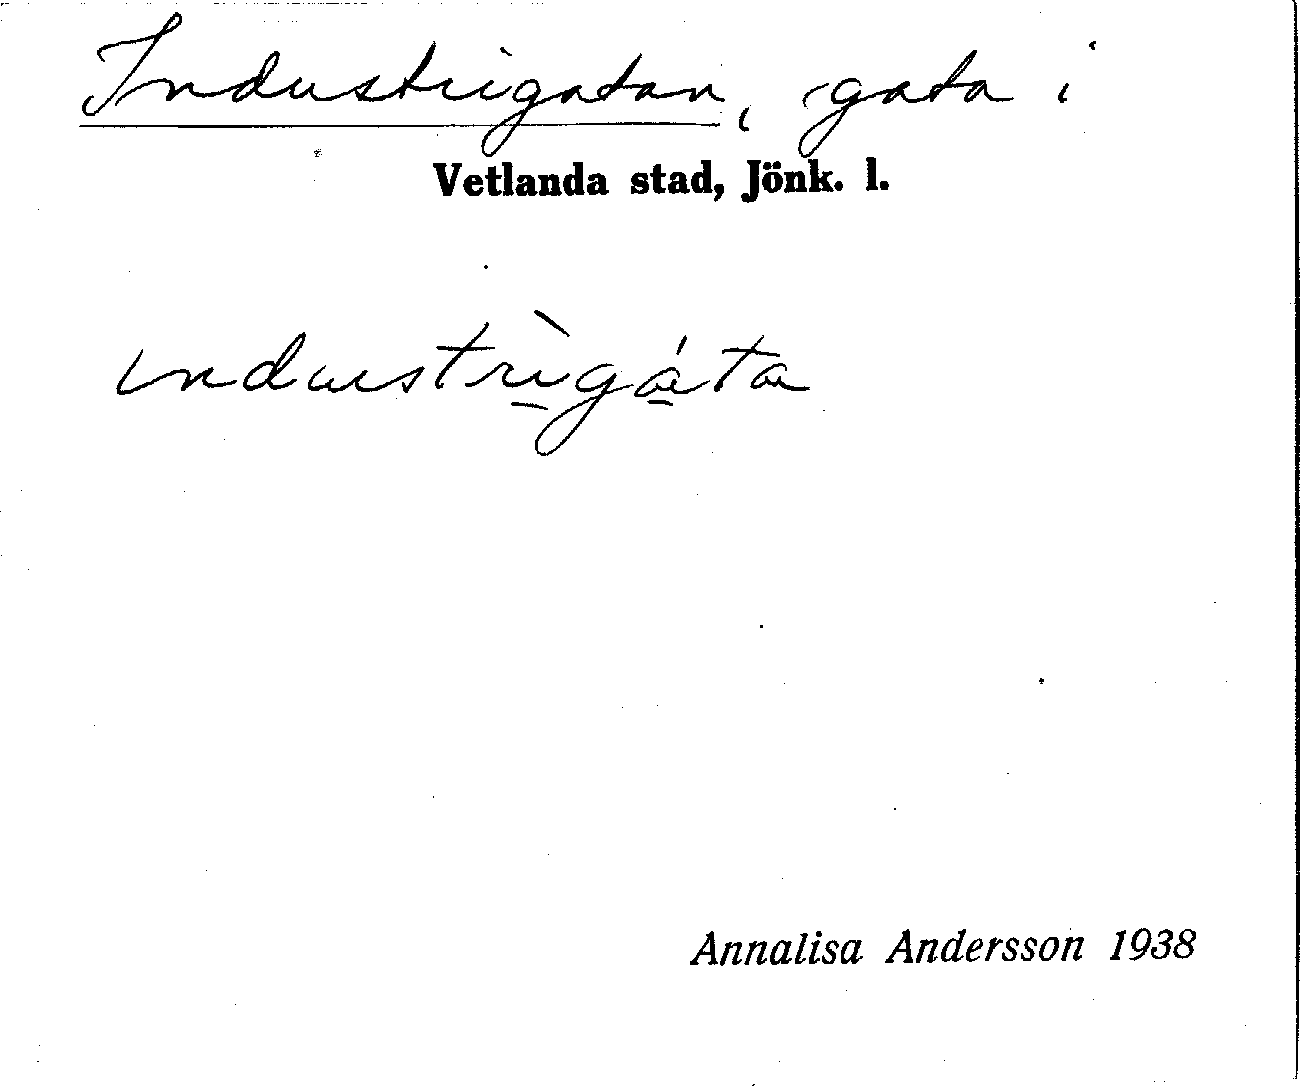 Industrigatan, gata i
Vetlanda stad, Jönk. l.
industrìgáta
Annalisa Andersson 1938